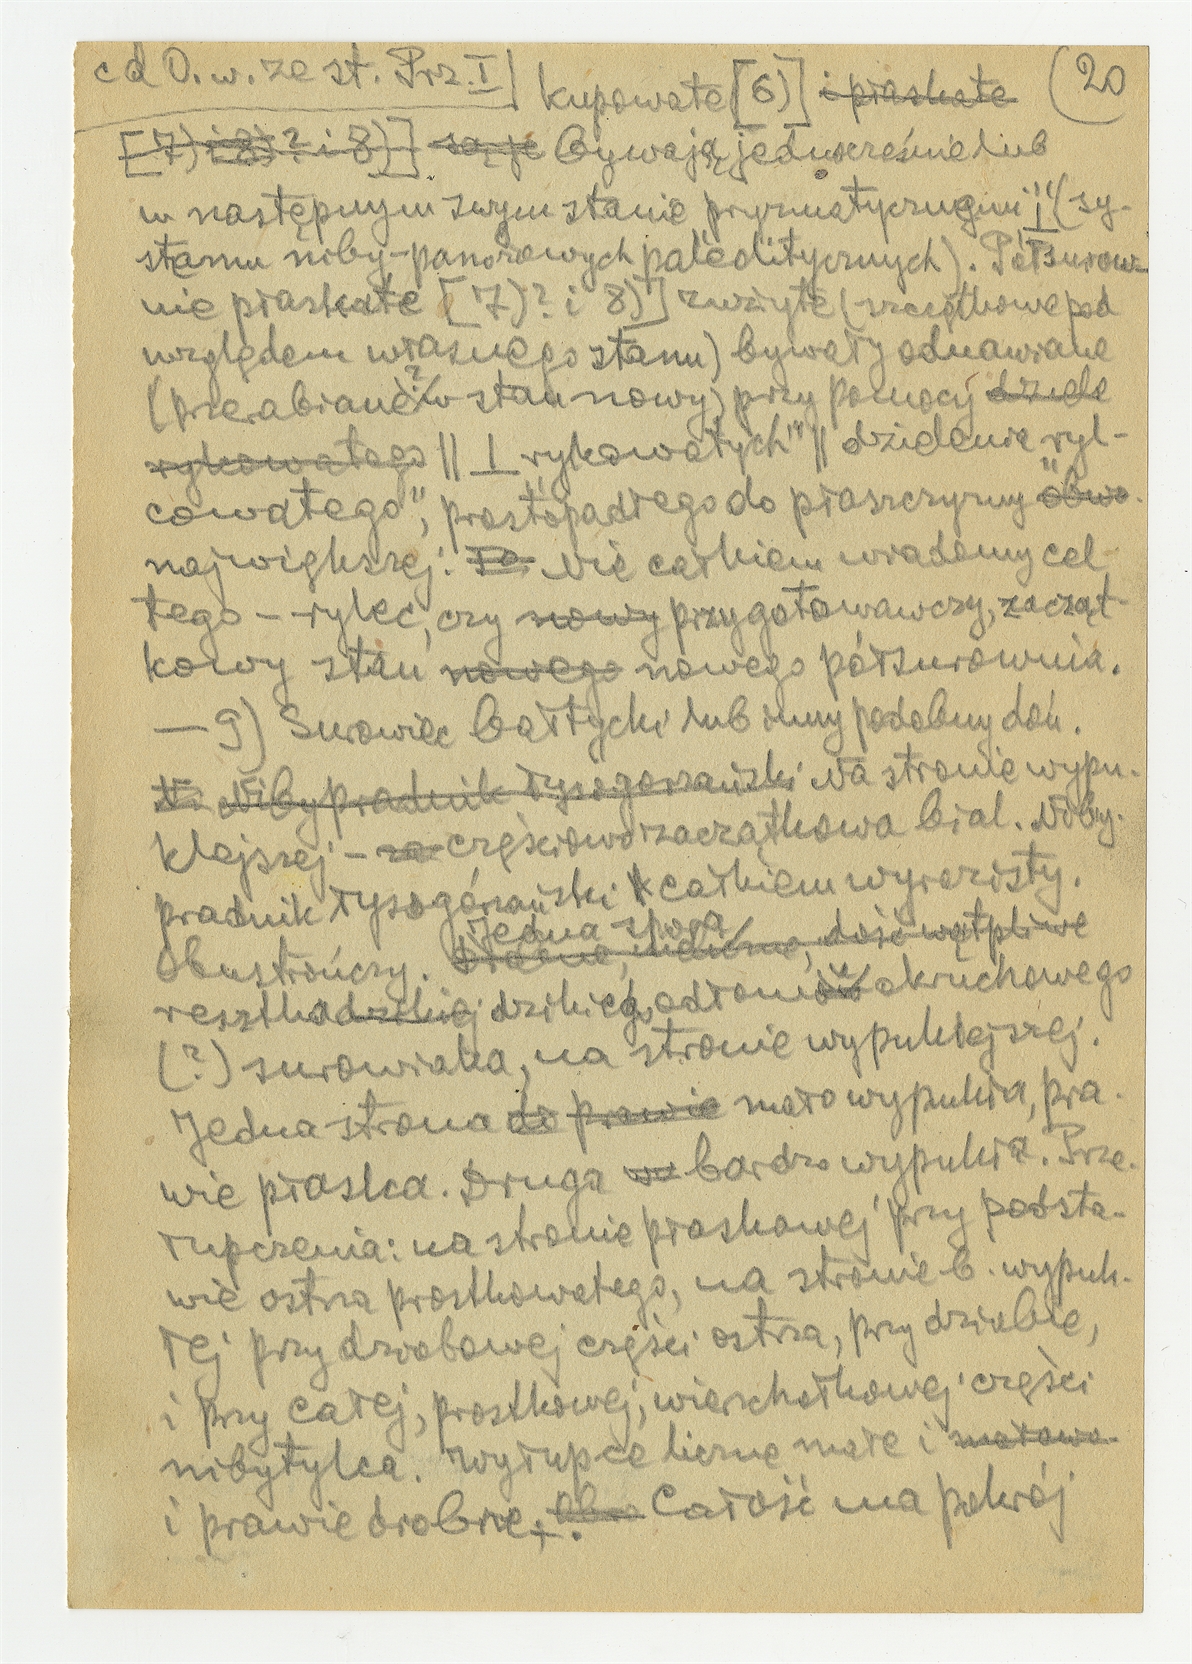 cd O. w. ze st. Prz. I
(20
kupowate [6)] i płaskate
[7) i 8)? i 8)] są je bywają jednocześnie lub
w następnym swym stanie pryzmatycznym "I" (sy-
stemu niby-panozowych paleolitycznych). Półsurow-
nie płaskate [7)? i 8)] zużyte (szczątkowe pod
względem własnego stanu) bywały odnawiane
(przerabiane? w stan nowy) przy pomocy dzieła
rylcowatego || I rylcowatych" || dzielenia ryl-
cowatego", prostopadłego do płaszczyzny obwo-
największej. Nie całkiem wiadomy cel
tego – rylec, czy nowy przygotowawczy, zacząt-
kowy stan nowego nowego półsurownia.
— 9) Surowiec bałtycki lub inny podobny doń.
Niby pradnik łysogórzański Na stronie wypu-
klejszej – częściowo zaczątkowa biał. Niby-
pradnik łysogórzański całkiem wyrazisty.
Jedna spora
Obustrończy. dość wątpliwe
resztka dzikiej dzikiej, odłamu okruchowego
(?) surowiaka, na stronie wypuklejszej.
Jedna strona do prawie mało wypukła, pra-
wie płaska. Druga bardzo wypukła. Prze-
rupczenia: na stronie płaskawej przy podsta-
wie ostrza prostkowatego, na stronie b. wypuk-
łej przy dziobowej części ostrza, przy dziobie,
i przy całej, prostkowej, wierzchołkowej części
nibytylca. Wyłupce liczne małe i
i prawie drobne. Całość na pokrój